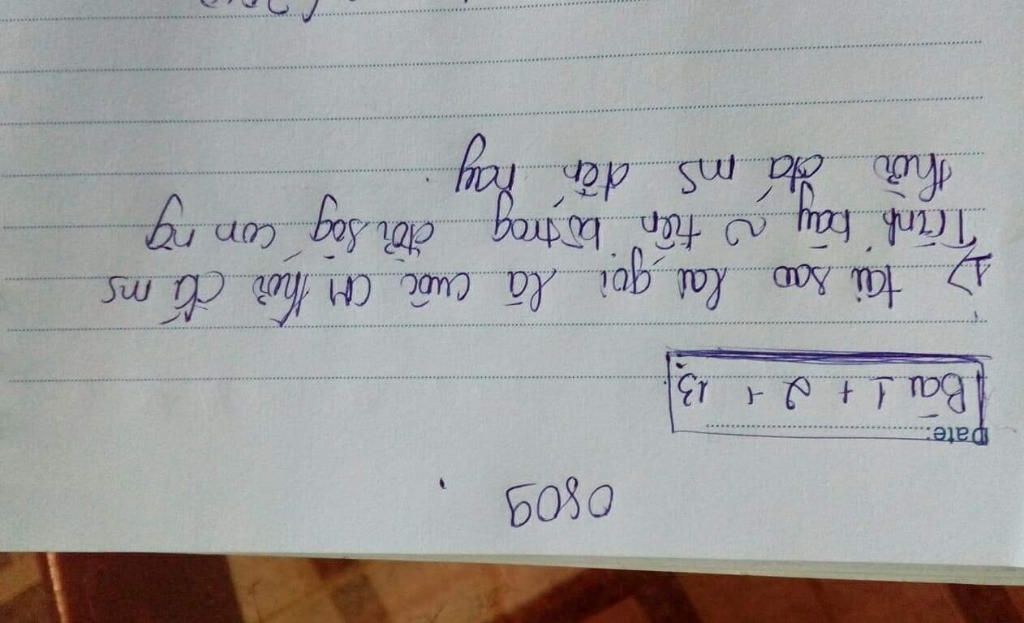 0809
Date:
Bài 1 + 2 + 13
1) tại sao lại gọi là cuộc CM thời đá ms
Trình bày 2 tiến bộ trog đời sốg con ng
thời đá ms đến nay.